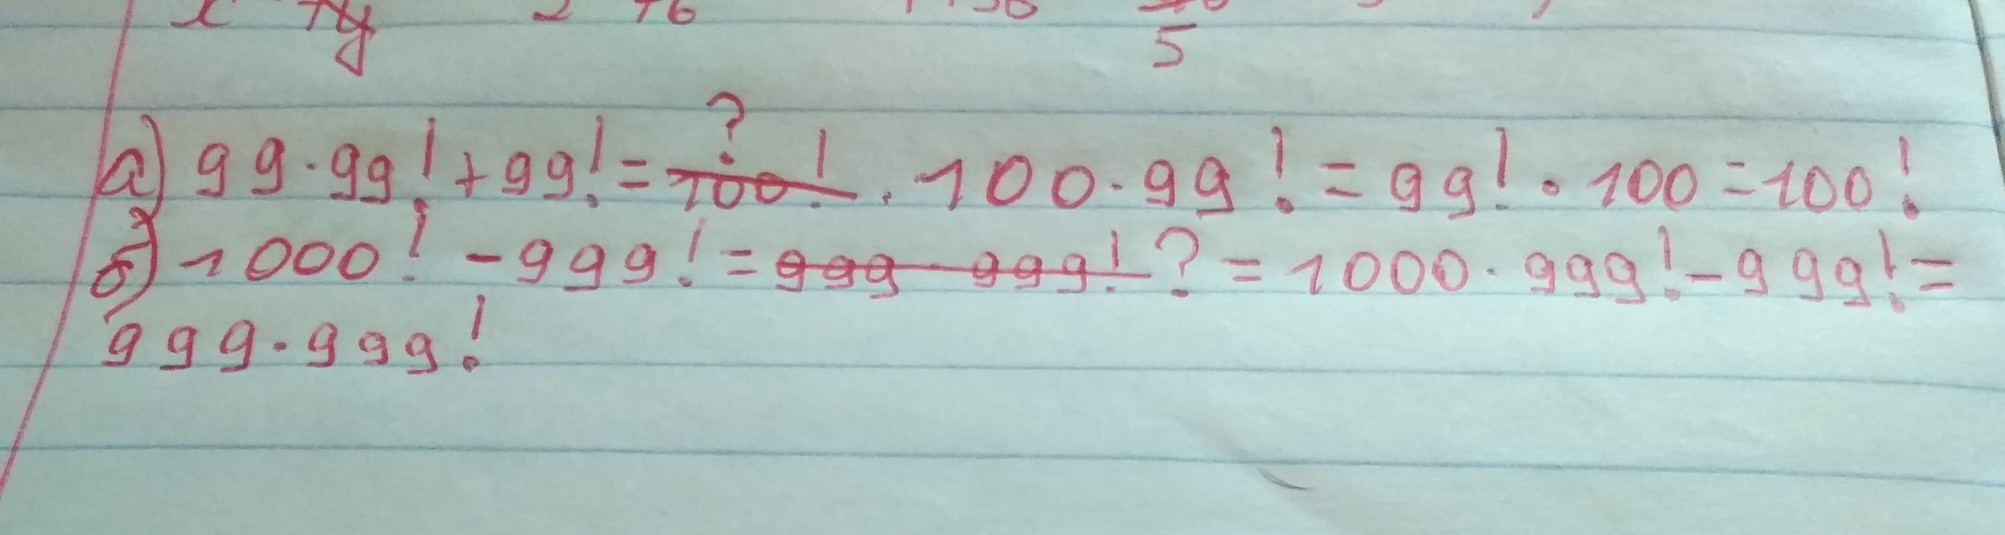 5
а) 99·99!+99!= ? 100!. 100·99!=99!·100=100!
б) 1000!-999!=999·999!?=1000·999!-999!=
999·999!